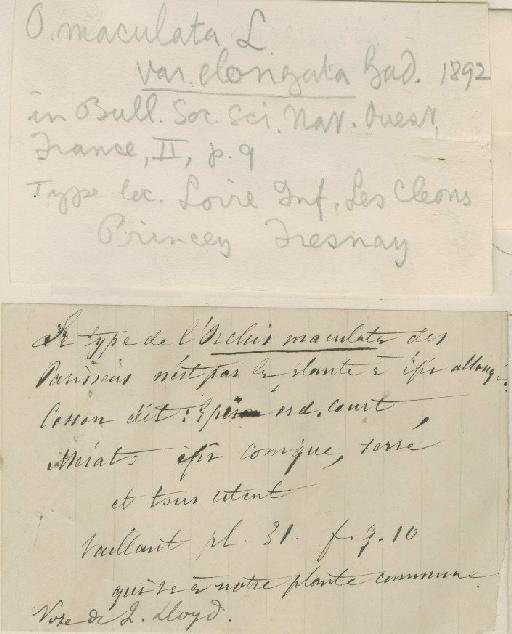 O. maculata L
var. elongata Gad. 1892
in Bull. Soc. Sci. Nat. Ouest,
France, II, p. 9
Type loc. Loire Inf, Les Cleons
Princey Fresnay
Le type de l'Orchis maculata des
Parisiens n'est pas la plante à épi allongé.
Cosson dit : Epi ord. court
Mérat : épi conique, serré
et tous citent
Vaillant pl. 31. f. 9. 10
qui va à notre plante commune
Note de J. Lloyd.